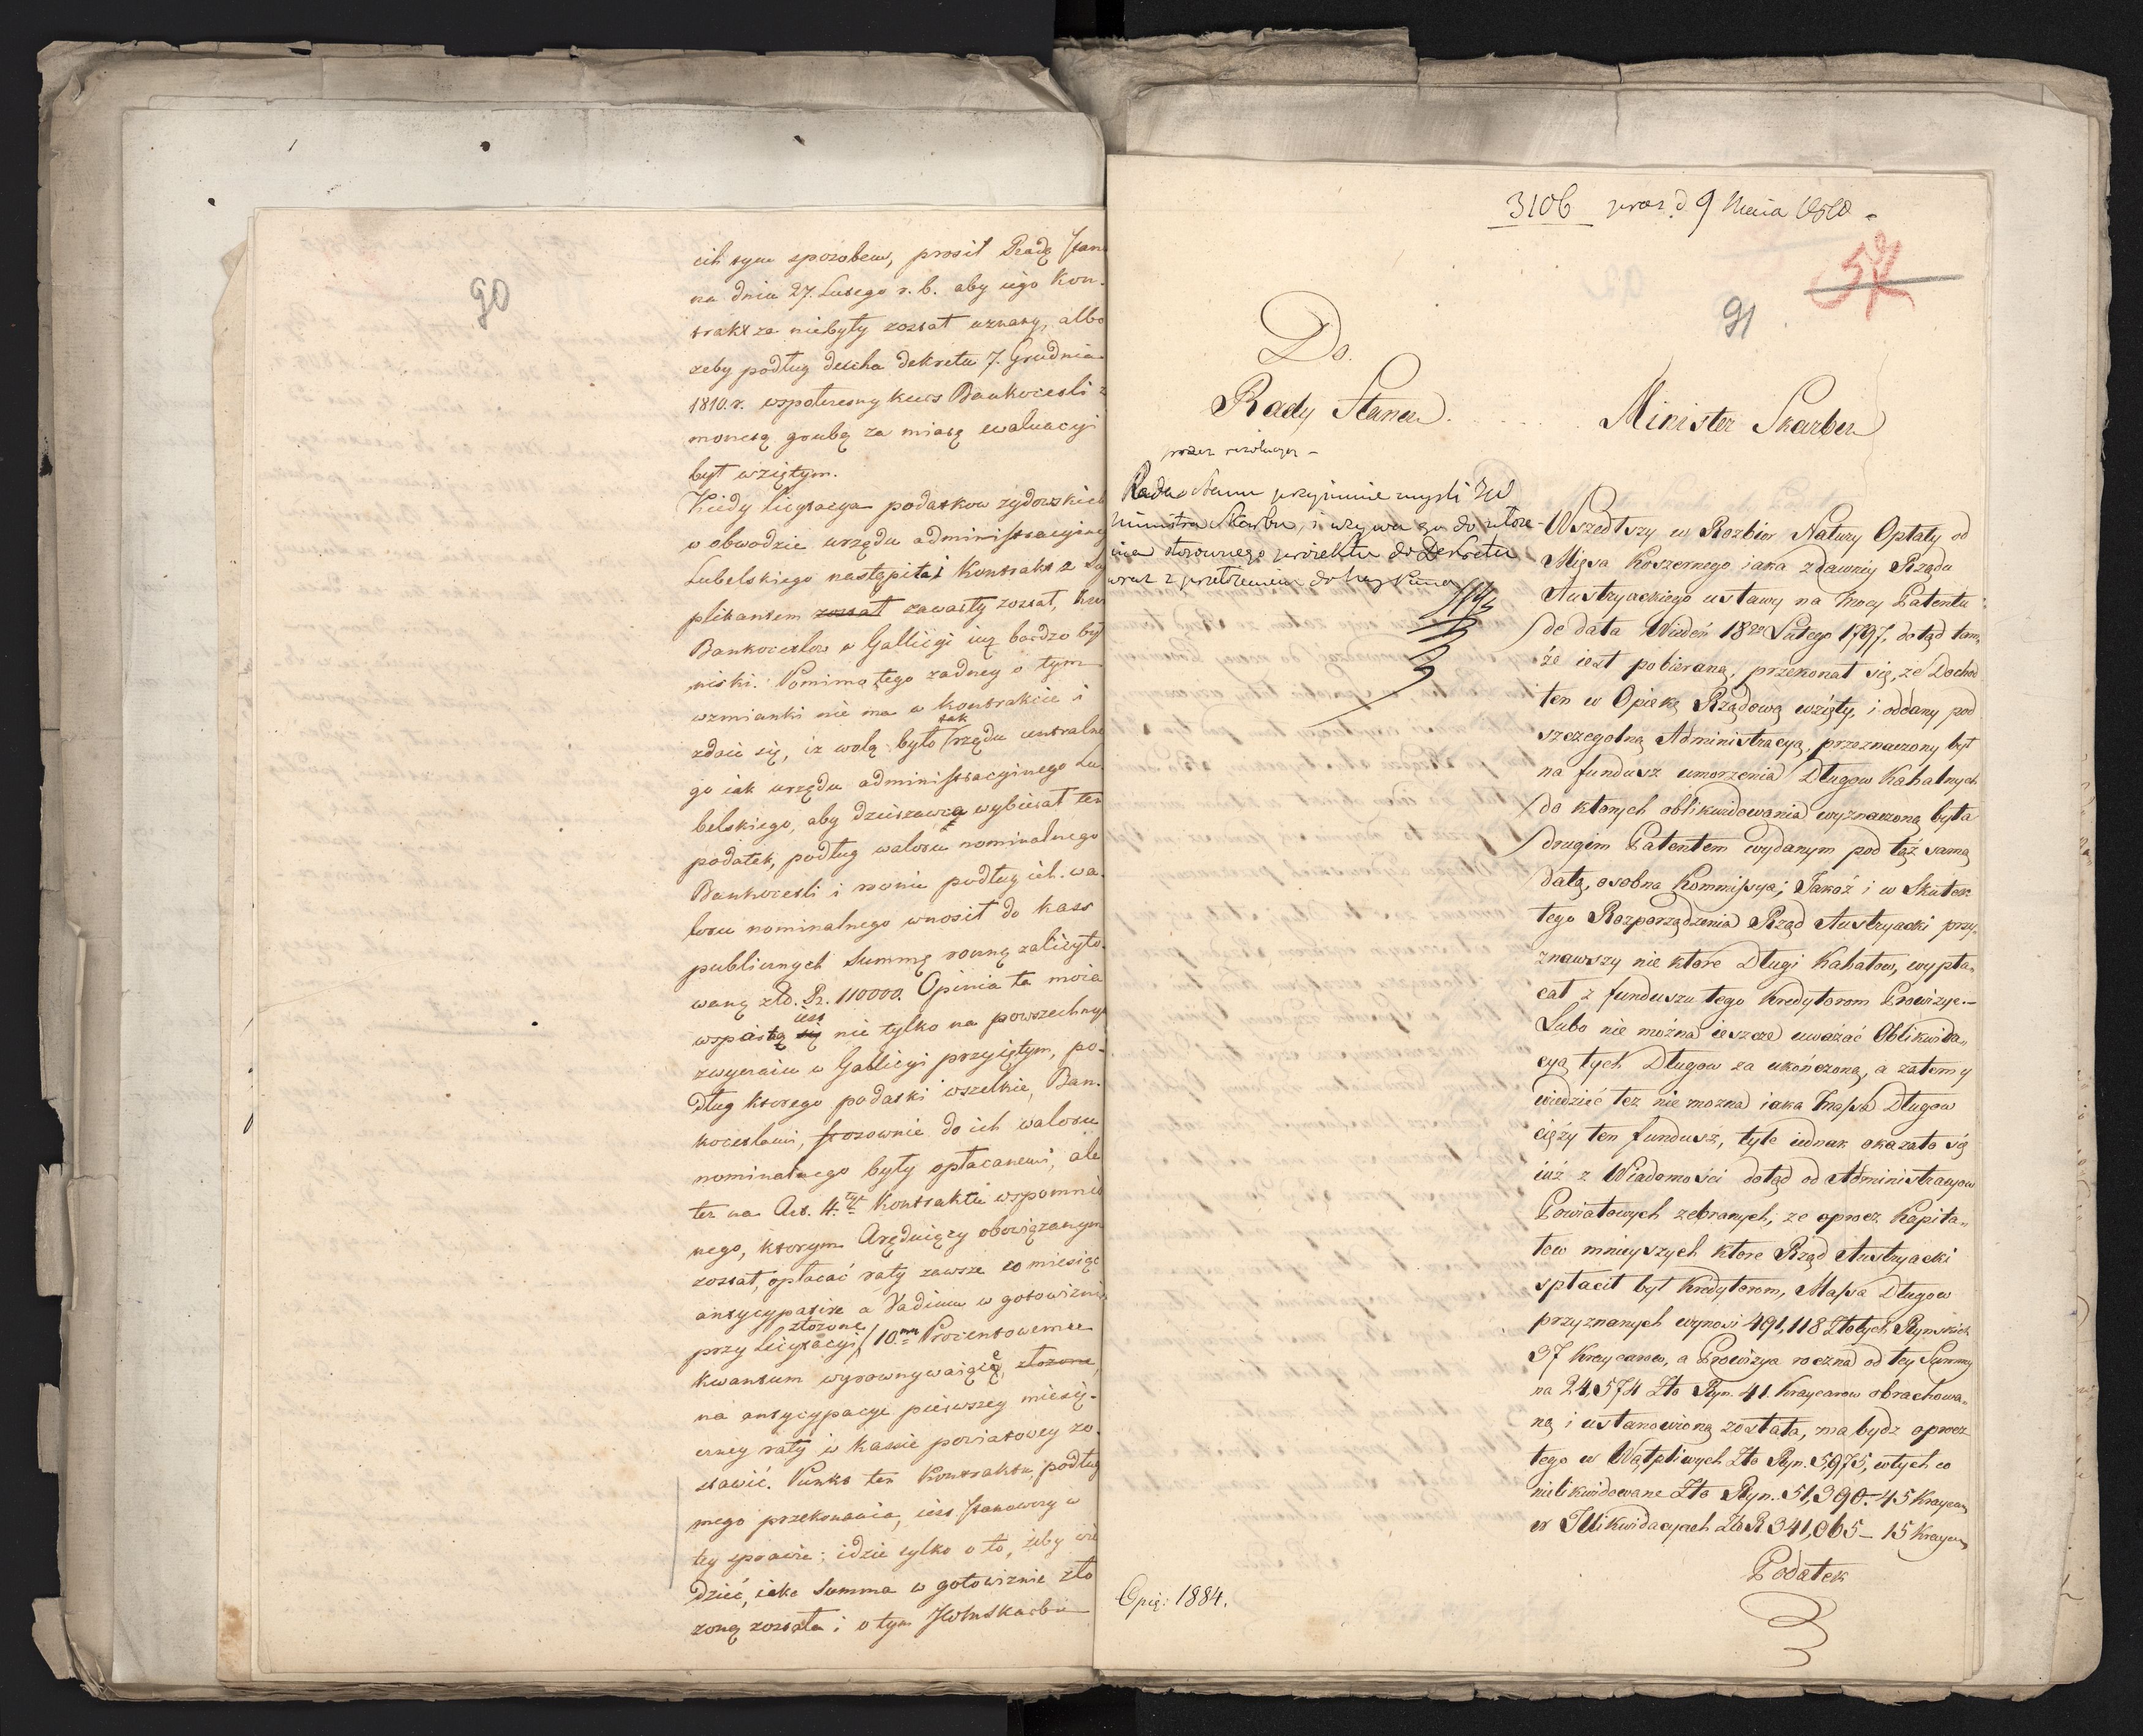 90
cih tym sposobem, prosił Radę stan
na dniu 27. Lutego r. b. aby iego kon-
trakt za niebyły został uznany, albo
żeby podług ducha dekretu 7. Grudnia
1810. r. wspołczesny kurs Bankocetli z
monetą grubą za miarę ewaluacyi
był wziętym.
Kiedy licytacya podatkow żydowskich
w obwodzie urzędu administracyinego
Lubelskiego nastąpiła i kontrakt z Su
plikantem został zawarty został, kurs
Bankocetlow w Gallicyi iuż bardzo był
niski. Pomimo tego żadney o tym
wzmianki nie ma w kontrakcie i
zdaie się, iż wolą było tak rządu centralne
go iak urzędu administracyinego Lu-
belskiego, aby dzierżawca wybierał ten
podatek, podług waloru nominalnego
Bankocetli i rownie podług ich wa-
loru nominalnego wnosił do kass
publicznych Summę rowną zalicyto-
waną złd. Rz. 110000. Opinia ta moia
wspartą się iest nie tylko na powszechnym
zwyczaiu w Gallicyi przyiętym, po-
dług ktorego podatki wszelkie, Ban-
kocetlami, stosownie do ich waloru
nominalnego były opłacanemi, ale
tez na Art. 4.tym kontraktu wspomnio
nego, ktorym Arędniący obowiązanym
został, opłacać raty zawsze co miesiąc
antycypative a Vadium w gotowiznie
przy licytacyi złożone 10.mu Procentowemu
kwantum wyrownywaiące, złożone,
na antycypacye pierwszey miesię-
czney raty w kassie powiatowey zo-
stawić. Punkt ten kontraktu, podług
mego przekonania, iest stanowczy w
tey sprawie; idzie tylko o to, żeby wie
dzieć, iaka Summa w gotowiznie zło
żoną została i o tym JWMSkarbu
3106 praes. d 9 Maia 1810
57
91
Do.
Rady Stanu.
Minister Skarbu
Rada Stanu przyimuie mysli JW
Ministra Skarbu, i wzywa go do ułoże-
nia stosownego proiektu do Dekretu
wraz z przełożeniem do
Wszedłszy w Rozbior Natury Opłaty od
Mięsa Koszernego iaka z dawniey Rządu
Austryackiego ustawy na Mocy Patentu
de data Wiedeń 18go Lutego 1797, dotąd tam-
że iest pobieraną, przekonał się, ze Dochod
ten w Opiekę Rządową wzięty, i oddany pod
szczegolną Administracyą, przeznaczony był
na fundusz umorzenia Długow Kahalnych
do ktorych oblikwidowania wyznaczoną była
drugim Patentem wydanym pod tąż samą
datą, osobna Kommissya; Jakoż i w Skutek
tego Rozporządzenia Rząd Austryacki przy-
znawszy nie ktore Długi Kahałow, wypła-
cał z funduszu tego Kredytorom Prowizye.-
Lubo nie można ieszcze uważać Oblikwida-
cyą tych Długow za ukończoną, a zatem y
wiedzieć tez nie można iaka Massa Długow
cięży ten fundusz, tyle iednak okazało się
iuż z Wiadomości dotąd od Administracyow
Powiatowych zebranych, ze oprocz Kapita-
łow mnieyszych ktore Rząd Austryacki
spłacił był Kredytorom, Massa Długow
przyznanych wynosi 491,118 Złotych Rynskich
37 Kraycarow, a Prowizya roczna od tey Summy
na 24,574 Zło Ryn. 41. Kraycarow obrachowa-
ną i ustanowioną została, ma bydz oprocz
tego w Wątpliwych Zło Ryn. 5,975, w tych co
nielikwidowane Zło Ryn. 51,390.-45 Kraycar,
w Illikwidacyach Zło R 341,065 - 15 Kraycar,
Podatek
Opię: 1884.